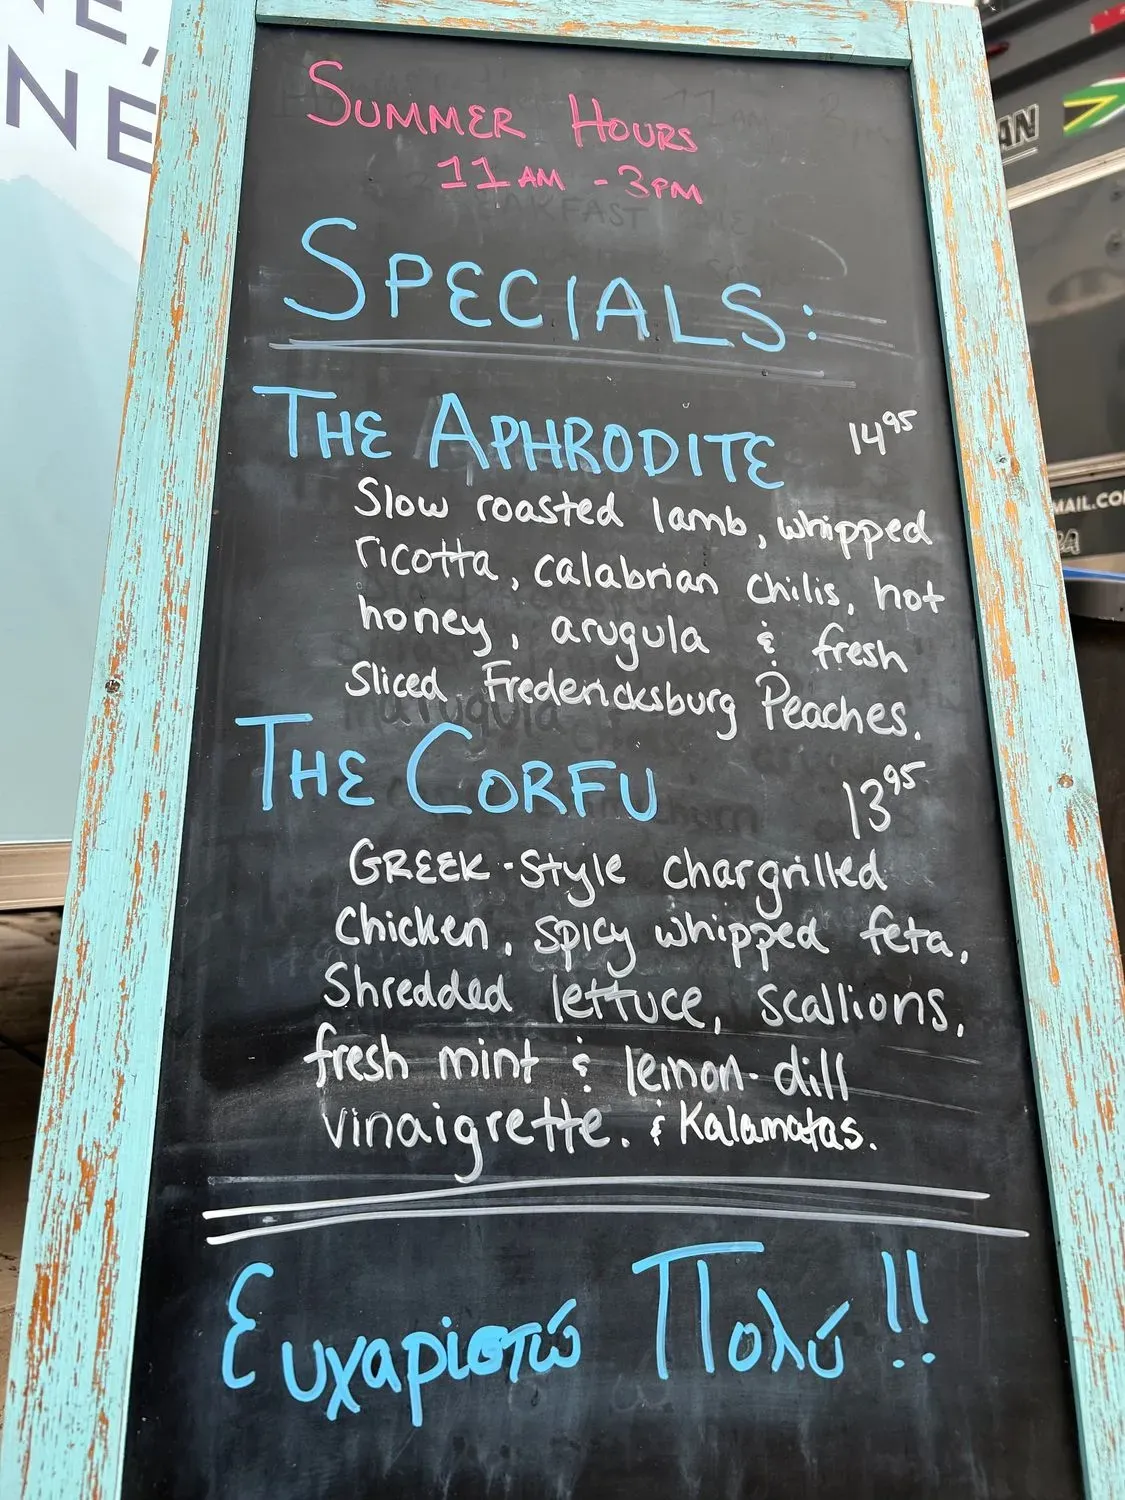 SUMMER HOURS
11 AM - 3 PM
SPECIALS:
THE APHRODITE 14⁹⁵
Slow roasted lamb, whipped
ricotta, calabrian chilis, hot
honey, arugula & fresh
Sliced Fredericksburg Peaches.
THE CORFU 13⁹⁵
GREEK-Style chargrilled
chicken, spicy whipped feta,
Shredded lettuce, scallions,
fresh mint & lemon-dill
vinaigrette. & Kalamatas.
Ευχαριστώ Πολύ!!
NE
AN
MAIL.CO